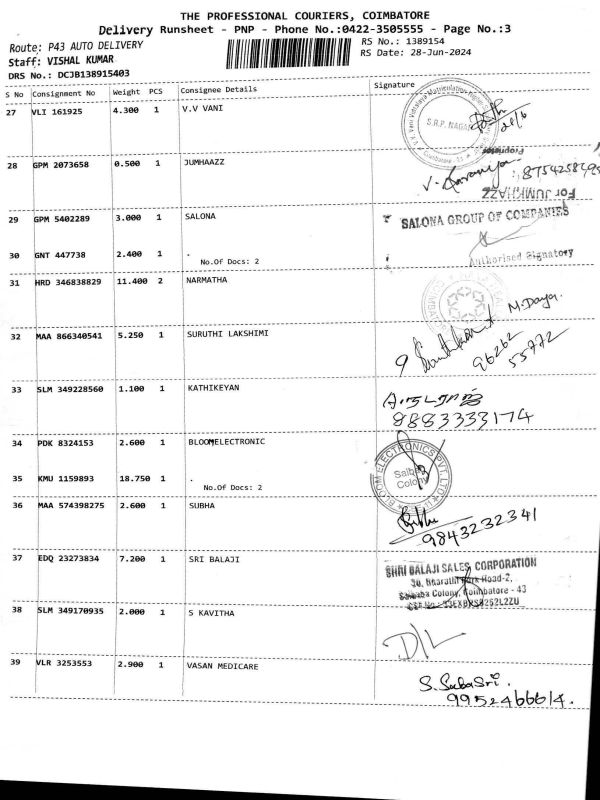 THE PROFESSIONAL COURIERS, COIMBATORE
Delivery Runsheet - PNP - Phone No.:0422-3505555 - Page No.:3
Route: P43 AUTO DELIVERY
RS No.: 1389154
Staff: VISHAL KUMAR
RS Date: 28-Jun-2024
DRS No.: DCJB138915403
S No Consignment No Weight PCS Consignee Details Signature
27 VLI 161925 4.300 1 V.V VANI
S.R.P. NAGAR
28/6
28 GPM 2073658 0.500 1 JUMHAAZZ
Proprietor
: 875425849
For JUMKHAZZ
29 GPM 5402289 3.000 1 SALONA
SALONA GROUP OF COMPANIES
30 GNT 447738 2.400 1 .
No.Of Docs: 2
Authorised Signatory
31 HRD 346838829 11.400 2 NARMATHA
M. Daya.
32 MAA 866340541 5.250 1 SURUTHI LAKSHIMI
96262
55772
33 SLM 349228560 1.100 1 KATHIKEYAN
8883333174
34 PDK 8324153 2.600 1 BLOOMELECTRONIC
BLOOM ELECTRONICS PVT. LTD
Saibaba
Colony
35 KMU 1159893 18.750 1 .
No.Of Docs: 2
36 MAA 574398275 2.600 1 SUBHA
9843232341
37 EDQ 23273834 7.200 1 SRI BALAJI
SHRI BALAJI SALES CORPORATION
30, Bharathi Park Road-2,
Saibaba Colony, Coimbatore - 43
38 SLM 349170935 2.000 1 S KAVITHA
D/L
39 VLR 3253553 2.900 1 VASAN MEDICARE
S. SubaSri.
9952466614.